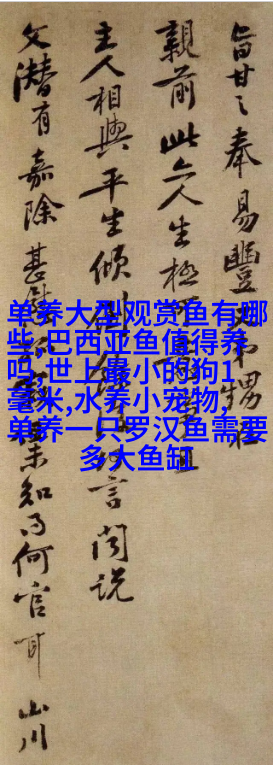 旨甘之奉易豐弟甥
親前此亦人生極
主人相與平生傾倒言聞说
文潜有嘉除甚未知何官耳山川
单养大型观赏鱼有哪
些,巴西亚鱼值得养
吗,世上最小的狗1
毫米,水养小宠物,
单养一只罗汉鱼需要
多大鱼缸